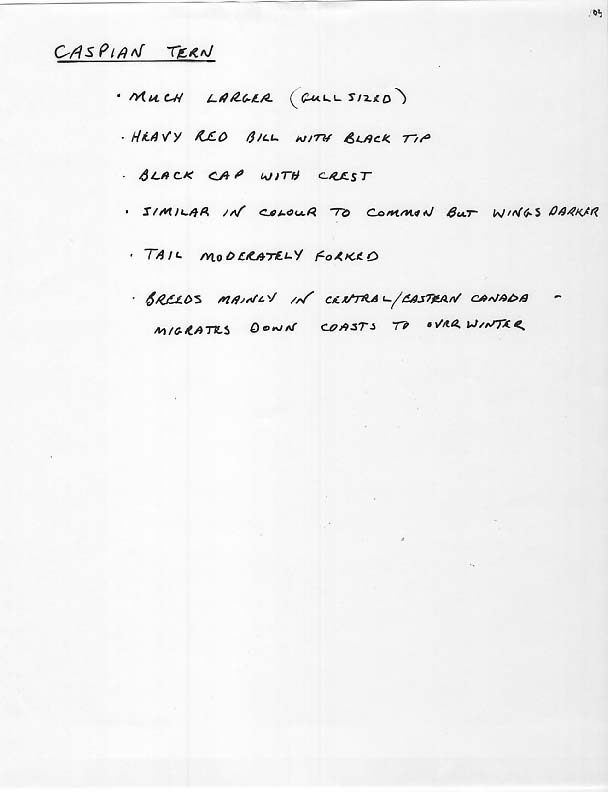 CASPIAN TERN
· MUCH LARGER (GULL SIZED)
· HEAVY RED BILL WITH BLACK TIP
· BLACK CAP WITH CREST
· SIMILAR IN COLOUR TO COMMON BUT WINGS DARKER
· TAIL MODERATELY FORKED
· BREEDS MAINLY IN CENTRAL/EASTERN CANADA -
MIGRATES DOWN COASTS TO OVERWINTER